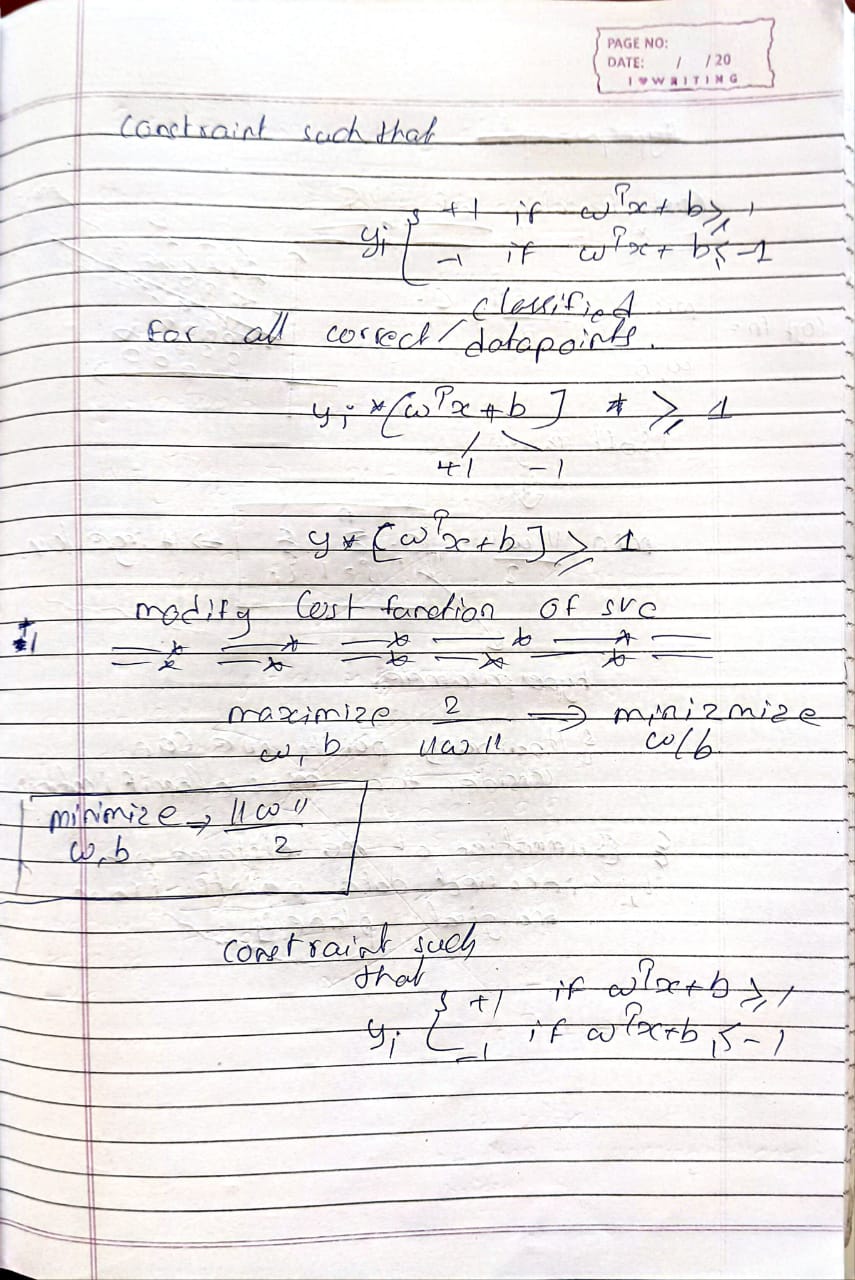 PAGE NO:
DATE: / /20
I ♥ WRITING
Constraint such that
yi { +1 if ωᵀx + b ≥ 1
-1 if ωᵀx + b ≤ -1
classified
for all correct / datapoints.
yi * [ωᵀx + b] * ≥ 1
+1 -1
y * [ωᵀx + b] ≥ 1
modify Cost function of svc
maximize 2 ⟹ minizmize
ω, b ||ω|| ω/b
minimize → ||ω||
ω, b 2
constraint such
that
yi { +1 if ωᵀx + b ≥ 1
-1 if ωᵀx + b ≤ -1